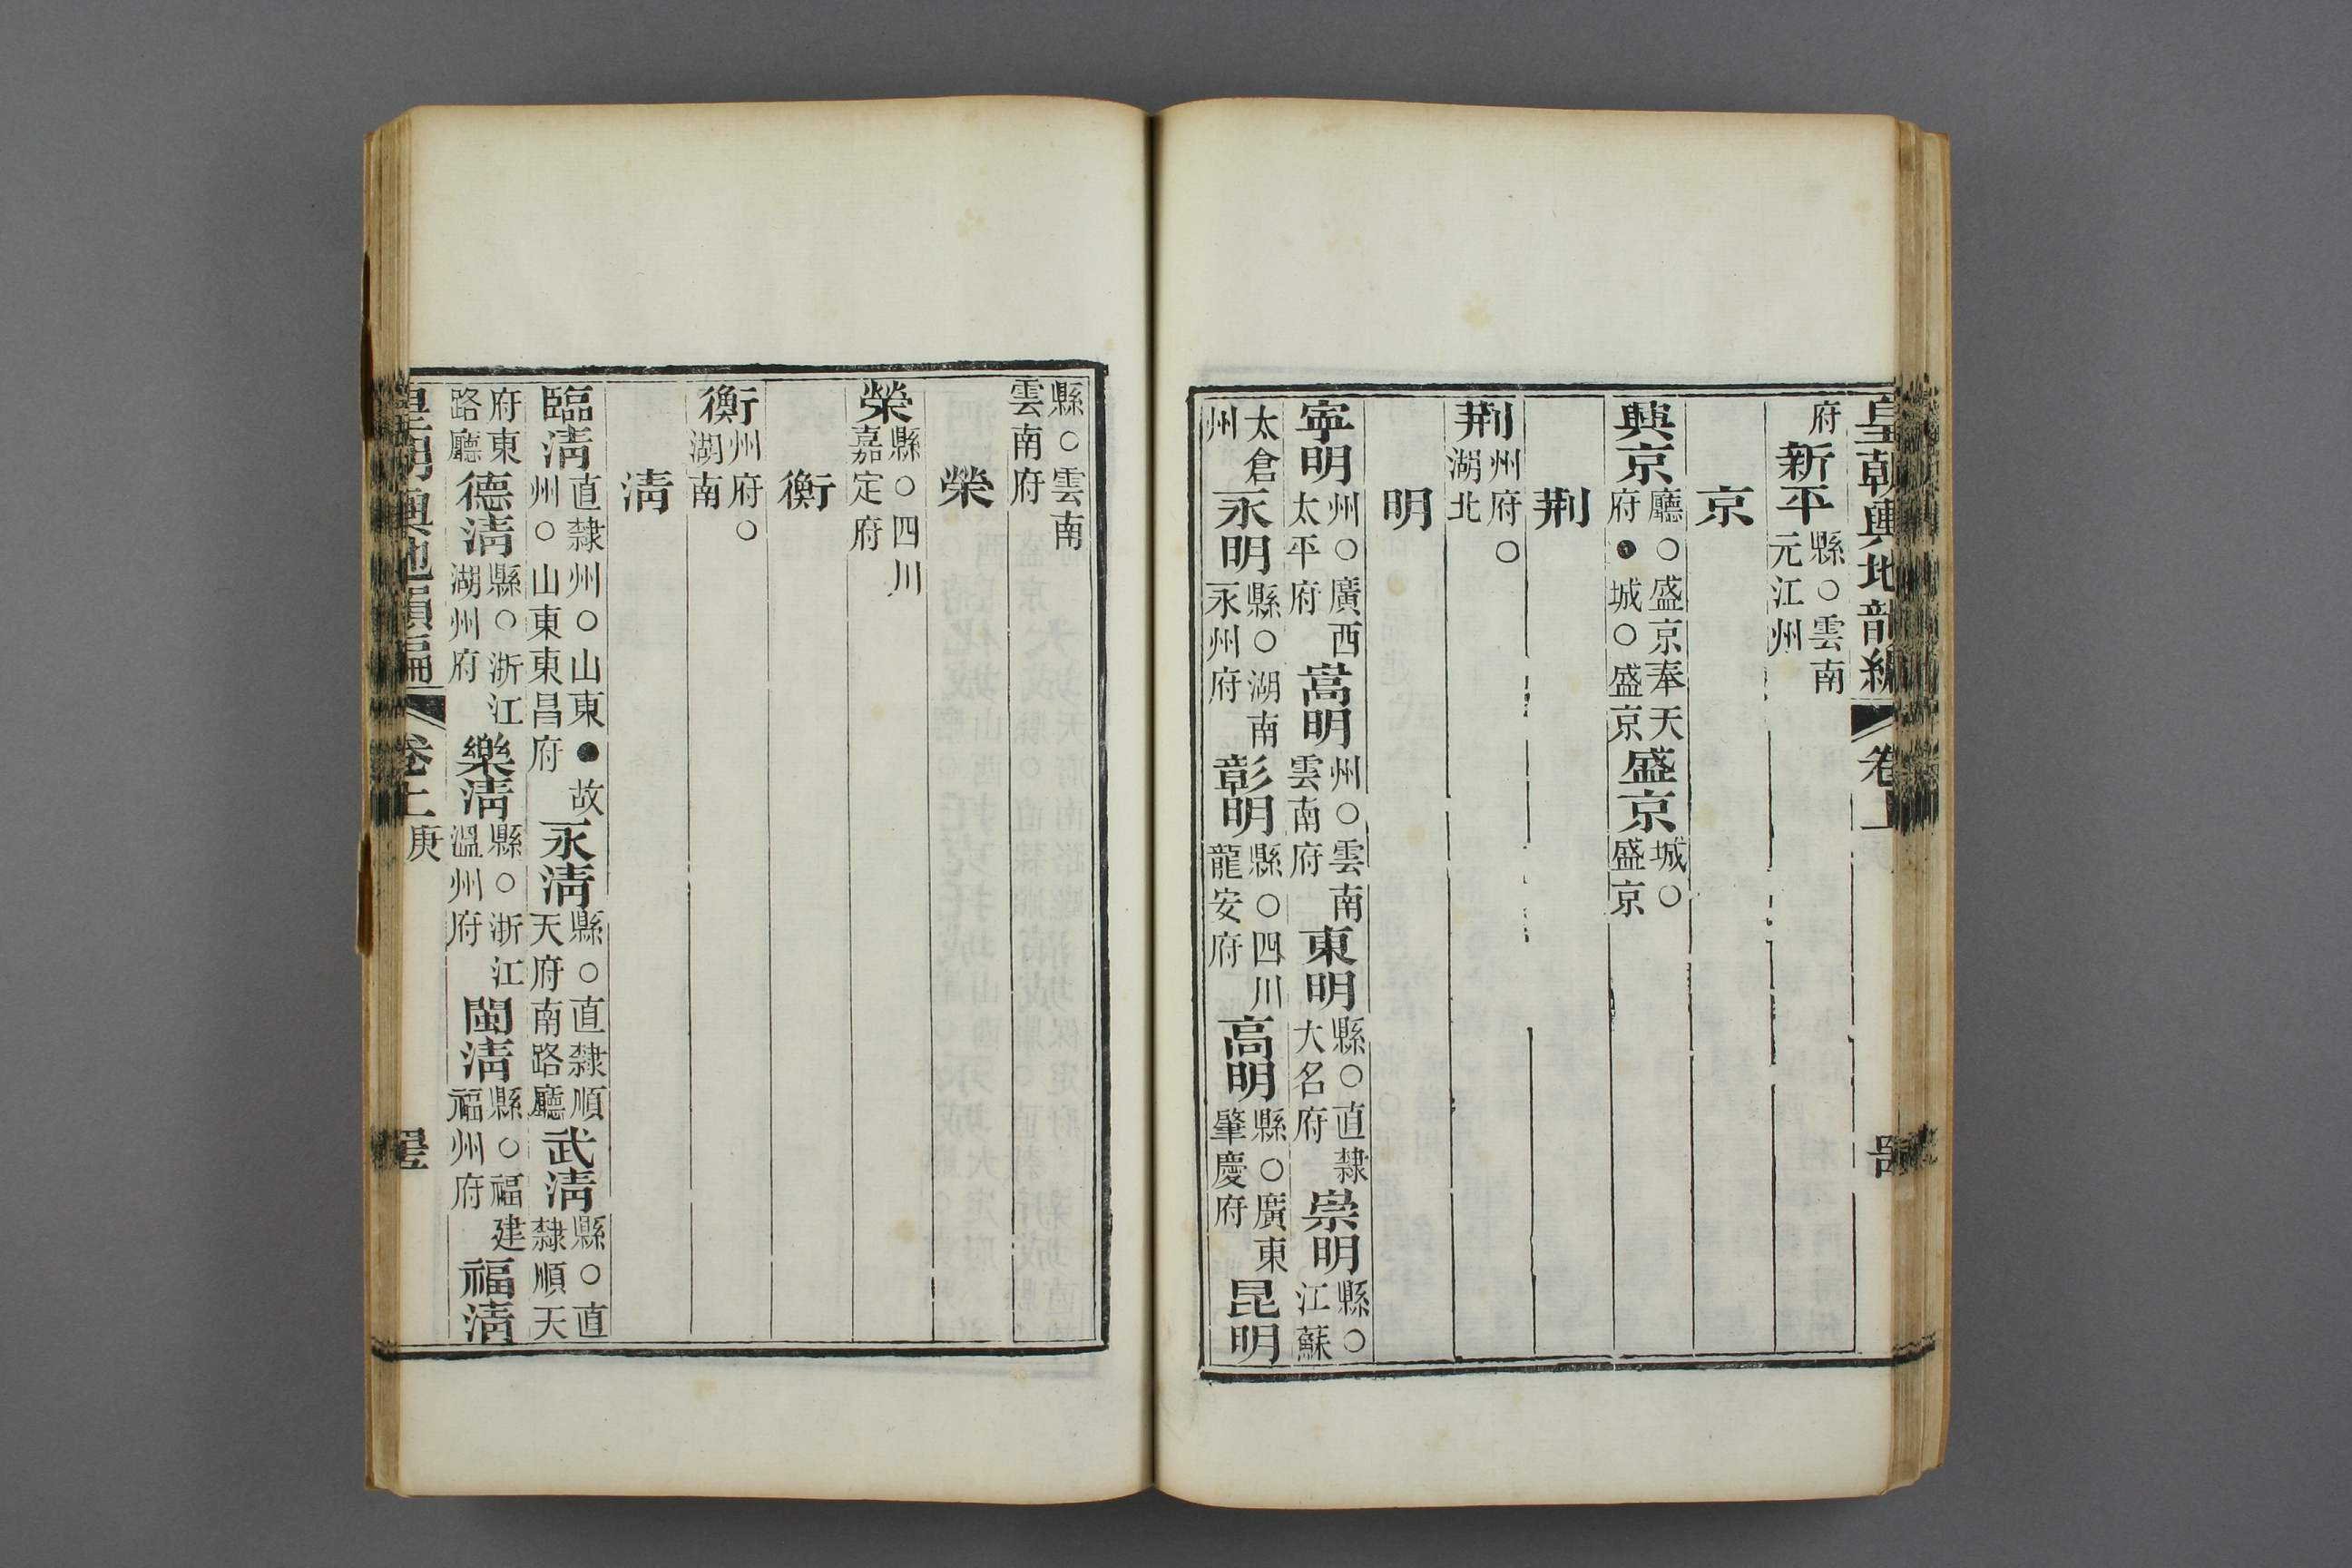 皇朝輿地韻編 卷上
府新平縣○雲南元江州
京
興京廳○盛京奉天府●城○盛京盛京城○盛京
荆
荆州府○湖北
明
寧明州○廣西太平府嵩明州○雲南雲南府東明縣○直隸大名府崇明縣○江蘇
太倉州永明縣○湖南永州府彰明縣○四川龍安府高明縣○廣東肇慶府昆明
縣○雲南雲南府
榮
榮縣○四川嘉定府
衡
衡州府○湖南
淸
臨淸直隸州○山東●故州○山東東昌府永淸縣○直隸順天府南路廳武淸縣○直隸順天
府東路廳德淸縣○浙江湖州府樂淸縣○浙江溫州府閩淸縣○福建福州府福淸
皇朝輿地韻編 卷上 庚